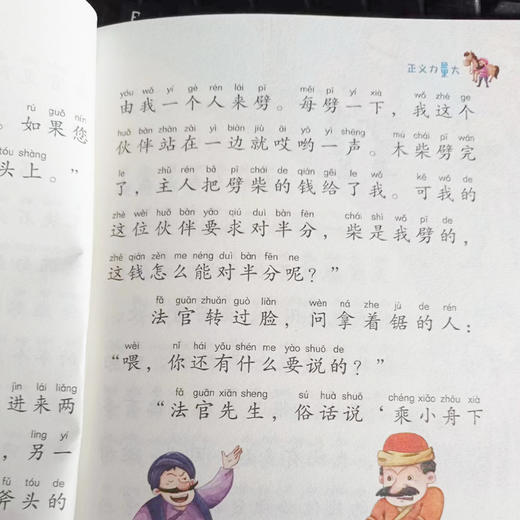 正义力量大
rú guǒ nín
。如果您
tóu shàng
头上。”
jìn lái liǎng
进来两
lìng yí
，另一
fǔ tóu de
斧头的
yóu wǒ yí gè rén lái pī měi pī yí xià wǒ zhè ge
由我一个人来劈。每劈一下，我这个
huǒ bàn zhàn zài yì biān jiù āi yō yì shēng mù chái pī wán
伙伴站在一边就哎哟一声。木柴劈完
le zhǔ rén bǎ pī chái de qián gěi le wǒ kě wǒ de
了，主人把劈柴的钱给了我。可我的
zhè wèi huǒ bàn yāo qiú duì bàn fēn chái shì wǒ pī de
这位伙伴要求对半分，柴是我劈的，
zhè qián zěn me néng duì bàn fēn ne
这钱怎么能对半分呢？”
fǎ guān zhuǎn guò liǎn wèn ná zhe jù de rén
法官转过脸，问拿着锯的人：
wèi nǐ hái yǒu shén me yào shuō de
“喂，你还有什么要说的？”
fǎ guān xiān sheng sú huà shuō chéng xiǎo zhōu xià
“法官先生，俗话说‘乘小舟下